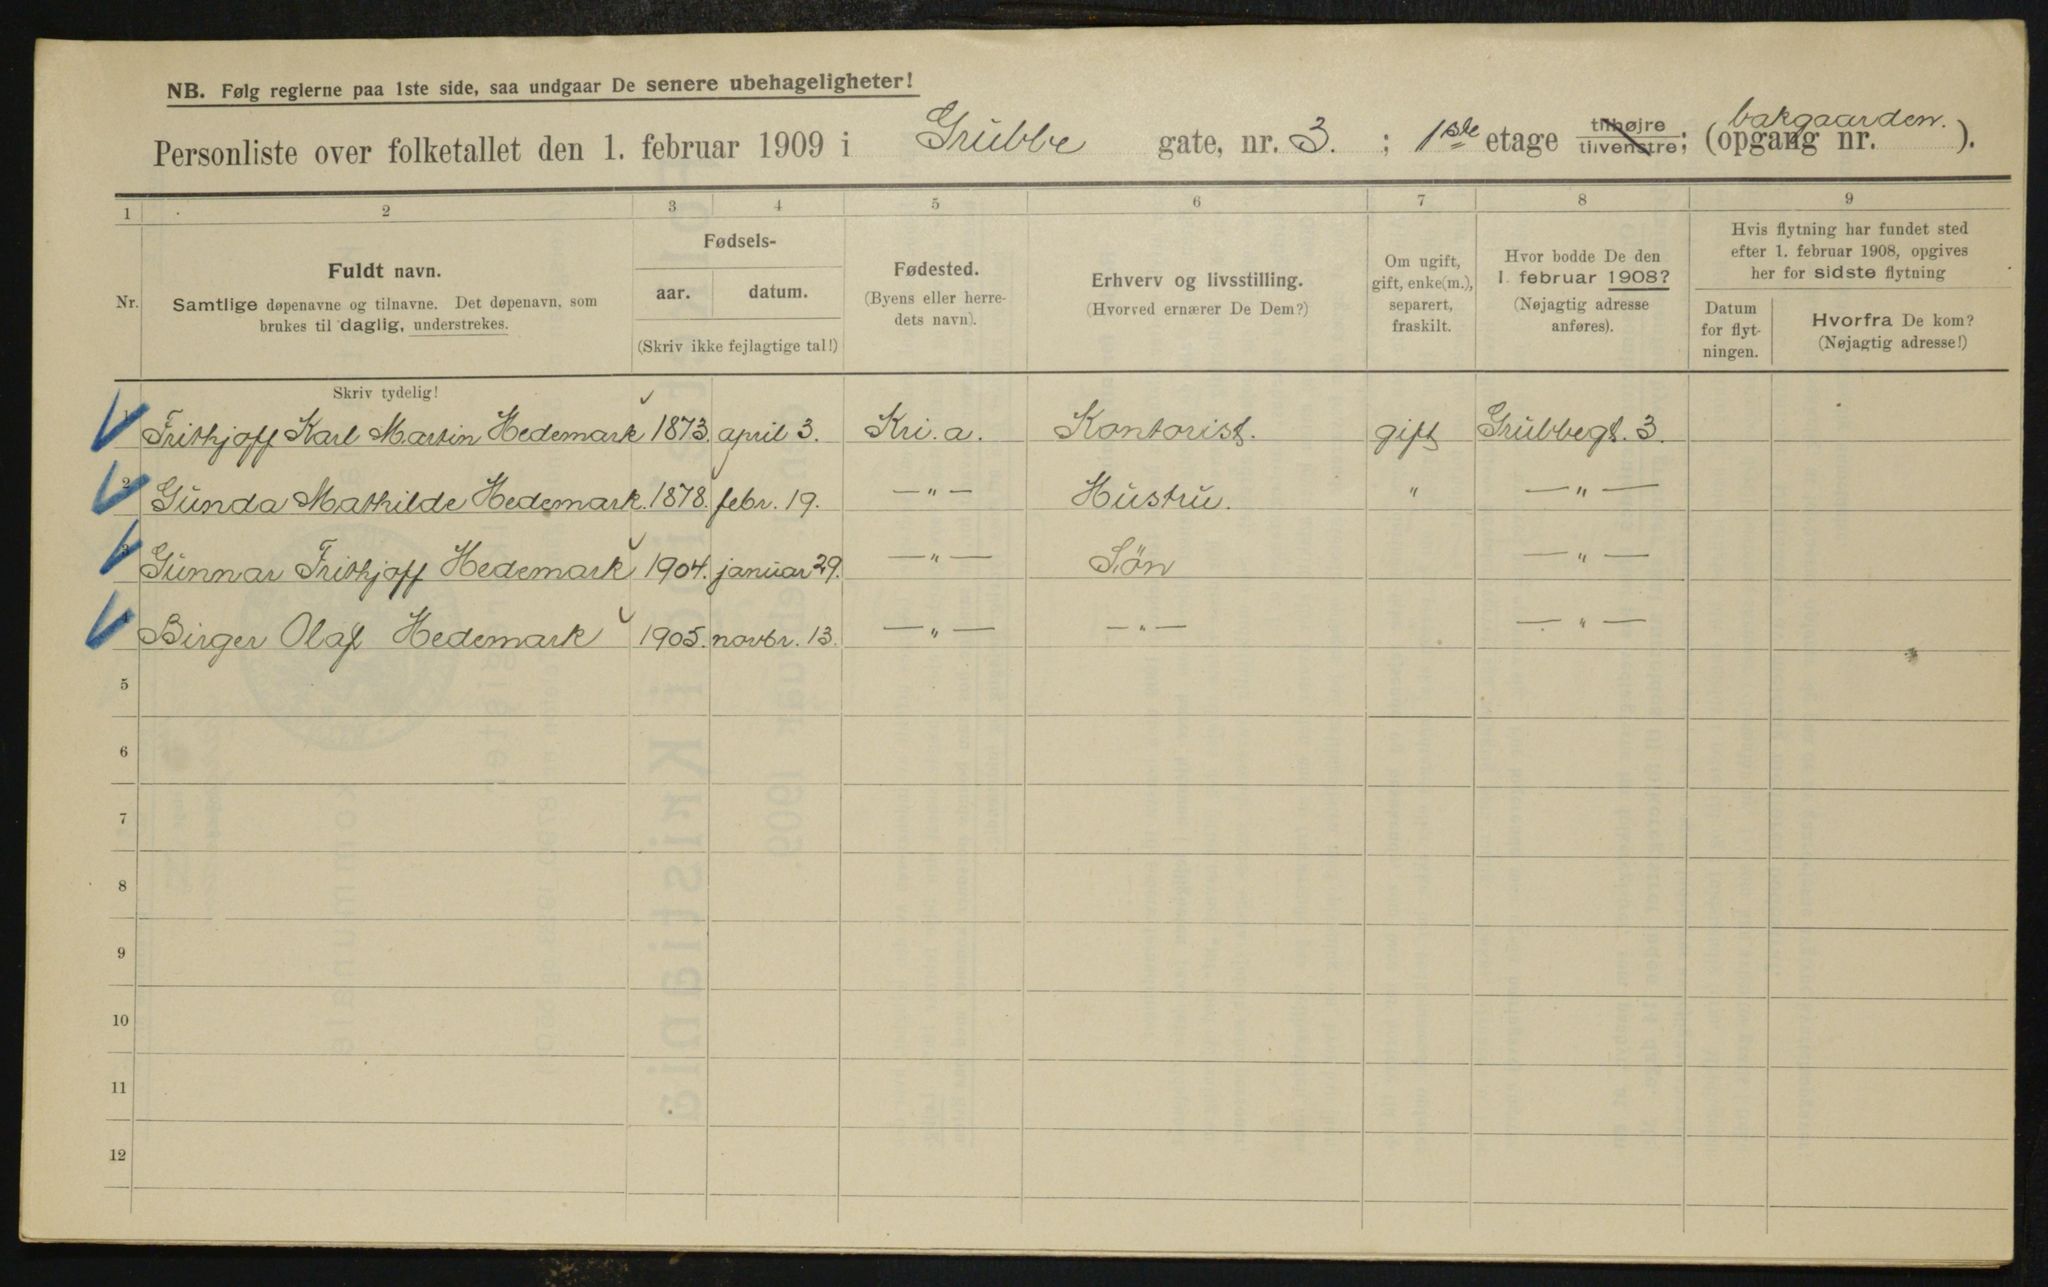 NB. Følg reglerne paa 1ste side, saa undgaar De senere ubehageligheter!
Personliste over folketallet den 1. februar 1909 i Grubbe gate, nr. 3. ; 1ste etage tilhøjre tilvenstre; (opgang nr. bakgaarden. ).
1 2 3 4 5 6 7 8 9
Nr.
Fuldt navn.
Samtlige døpenavne og tilnavne. Det døpenavn, som
brukes til daglig, understrekes.
Fødsels-
aar. datum.
(Skriv ikke fejlagtige tal!)
Fødested.
(Byens eller herre-
dets navn).
Erhverv og livsstilling.
(Hvorved ernærer De Dem?)
Om ugift,
gift, enke(m.),
separert,
fraskilt.
Hvor bodde De den
1. februar 1908?
(Nøjagtig adresse
anføres).
Hvis flytning har fundet sted
efter 1. februar 1908, opgives
her for sidste flytning
Datum
for flyt-
ningen.
Hvorfra De kom?
(Nøjagtig adresse!)
Skriv tydelig!
1 Frithjoff Karl Martin Hedemark 1873. april 3. Kri.a. Kontorist. gift Grubbegt. 3.
2 Gunda Mathilde Hedemark. 1878. febr. 19. —"— Hustru. " —"—
3 Gunnar Frithjoff Hedemark 1904. januar 29. —"— Søn —"—
4 Birger Olaf Hedemark 1905. novbr. 13. —"— —"— —"—
5
6
7
8
9
10
11
12